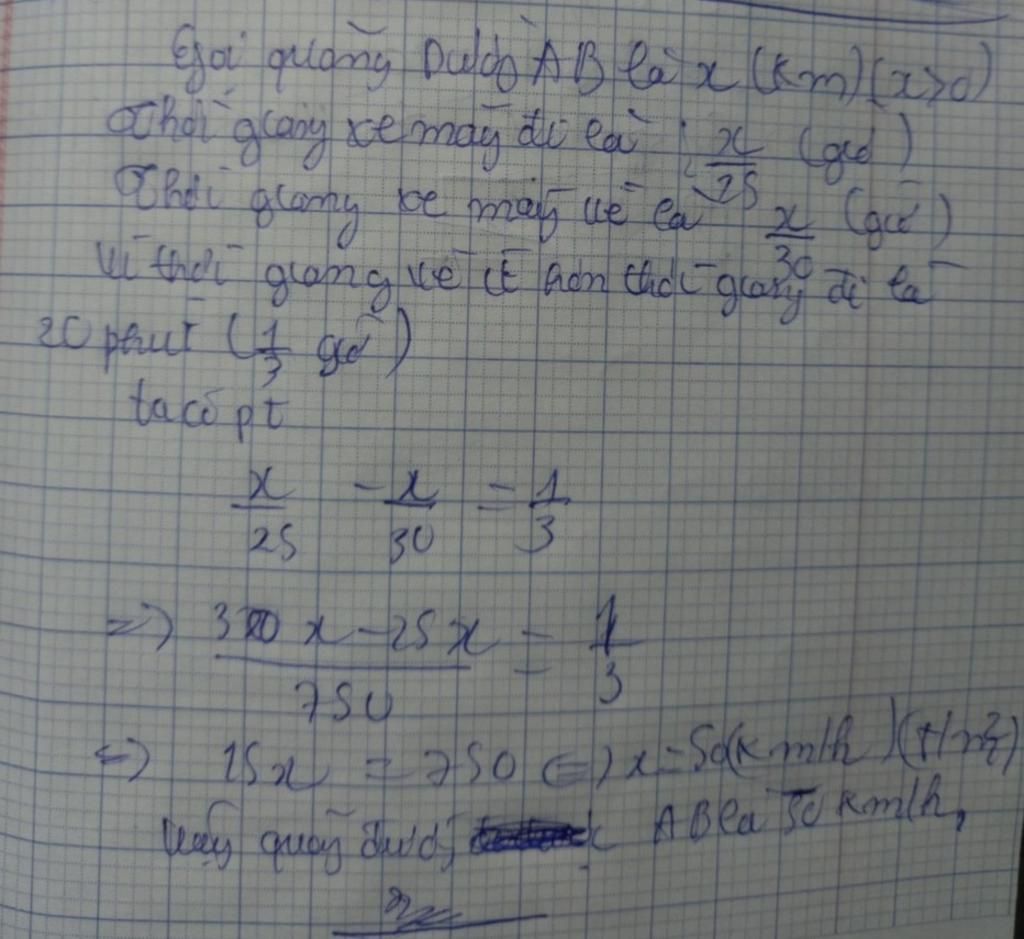 Gọi quãng Đường AB là x (km) (x>0)
Thời giang xe máy đi là : x/25 (giờ)
Thời giang xe máy về là x/30 (giờ)
Vì thời giang về ít hơn thời giang đi là
20 phút (1/3 giờ)
ta có pt
x/25 - x/30 = 1/3
=> 30x - 25x / 750 = 1/3
<=> 15x = 750 <=> x = 50 (km/h) (t/m)
Vậy quãng đường AB là 50 km/h,